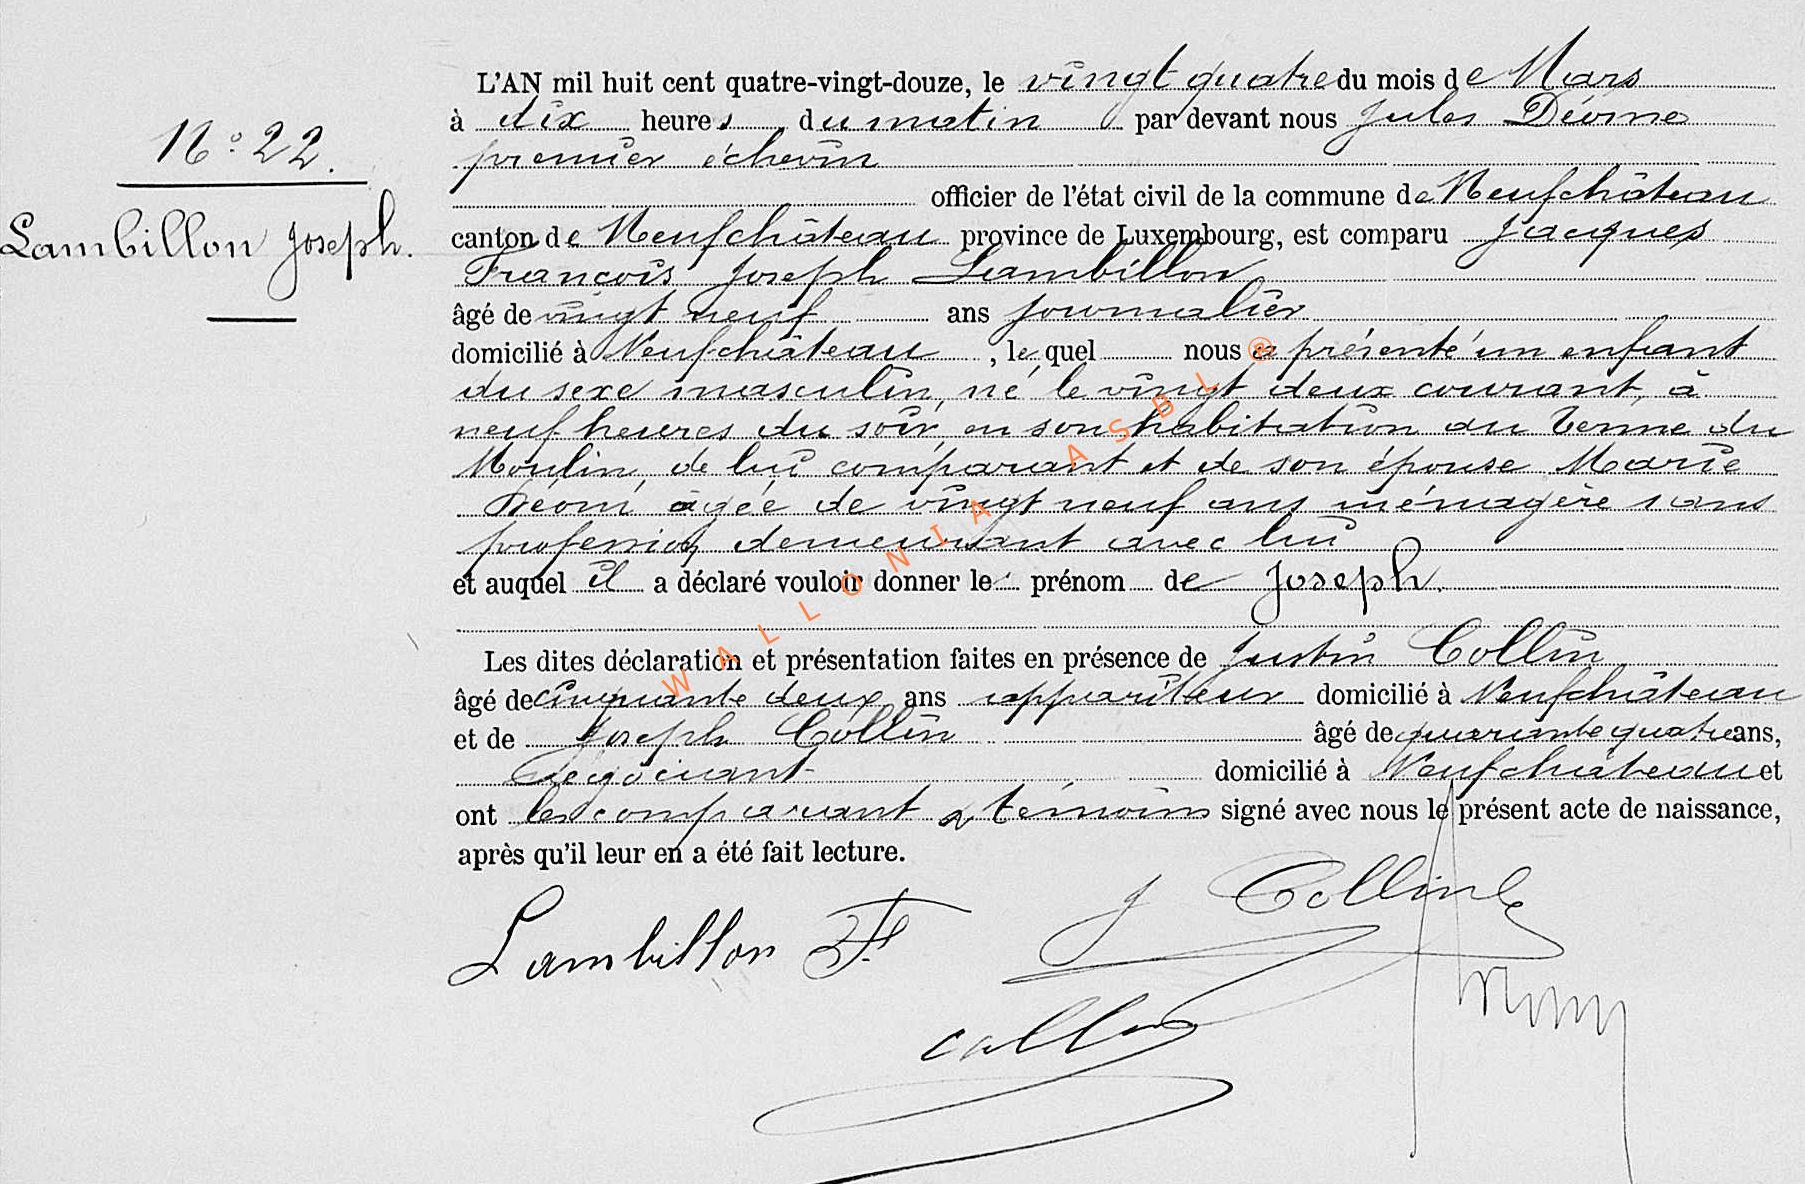 N° 22.
Lambillon Joseph.
L'AN mil huit cent quatre-vingt-douze, le vingt quatre du mois de Mars
à dix heures du matin par devant nous Jules
premier échevin
officier de l'état civil de la commune de Neufchâteau
canton de Neufchâteau province de Luxembourg, est comparu Jacques
François Joseph Lambillon
âgé de vingt neuf ans journalier
domicilié à Neufchâteau, lequel nous a présenté un enfant
du sexe masculin, né le vingt deux courant, à
neuf heures du soir, en son habitation au Terme du
Moulin, de lui comparant et de son épouse Marie
âgée de vingt neuf ans ménagère sans
profession demeurant avec lui
et auquel il a déclaré vouloir donner le prénom de Joseph.
Les dites déclaration et présentation faites en présence de Justin Collin
âgé de cinquante deux ans appariteur domicilié à Neufchâteau
et de Joseph Collin âgé de quarante quatre ans,
négociant domicilié à Neufchâteau et
ont les comparant & témoins signé avec nous le présent acte de naissance,
après qu'il leur en a été fait lecture.
J Collin
Lambillon F
Collin
WALLONIA ASBL ®